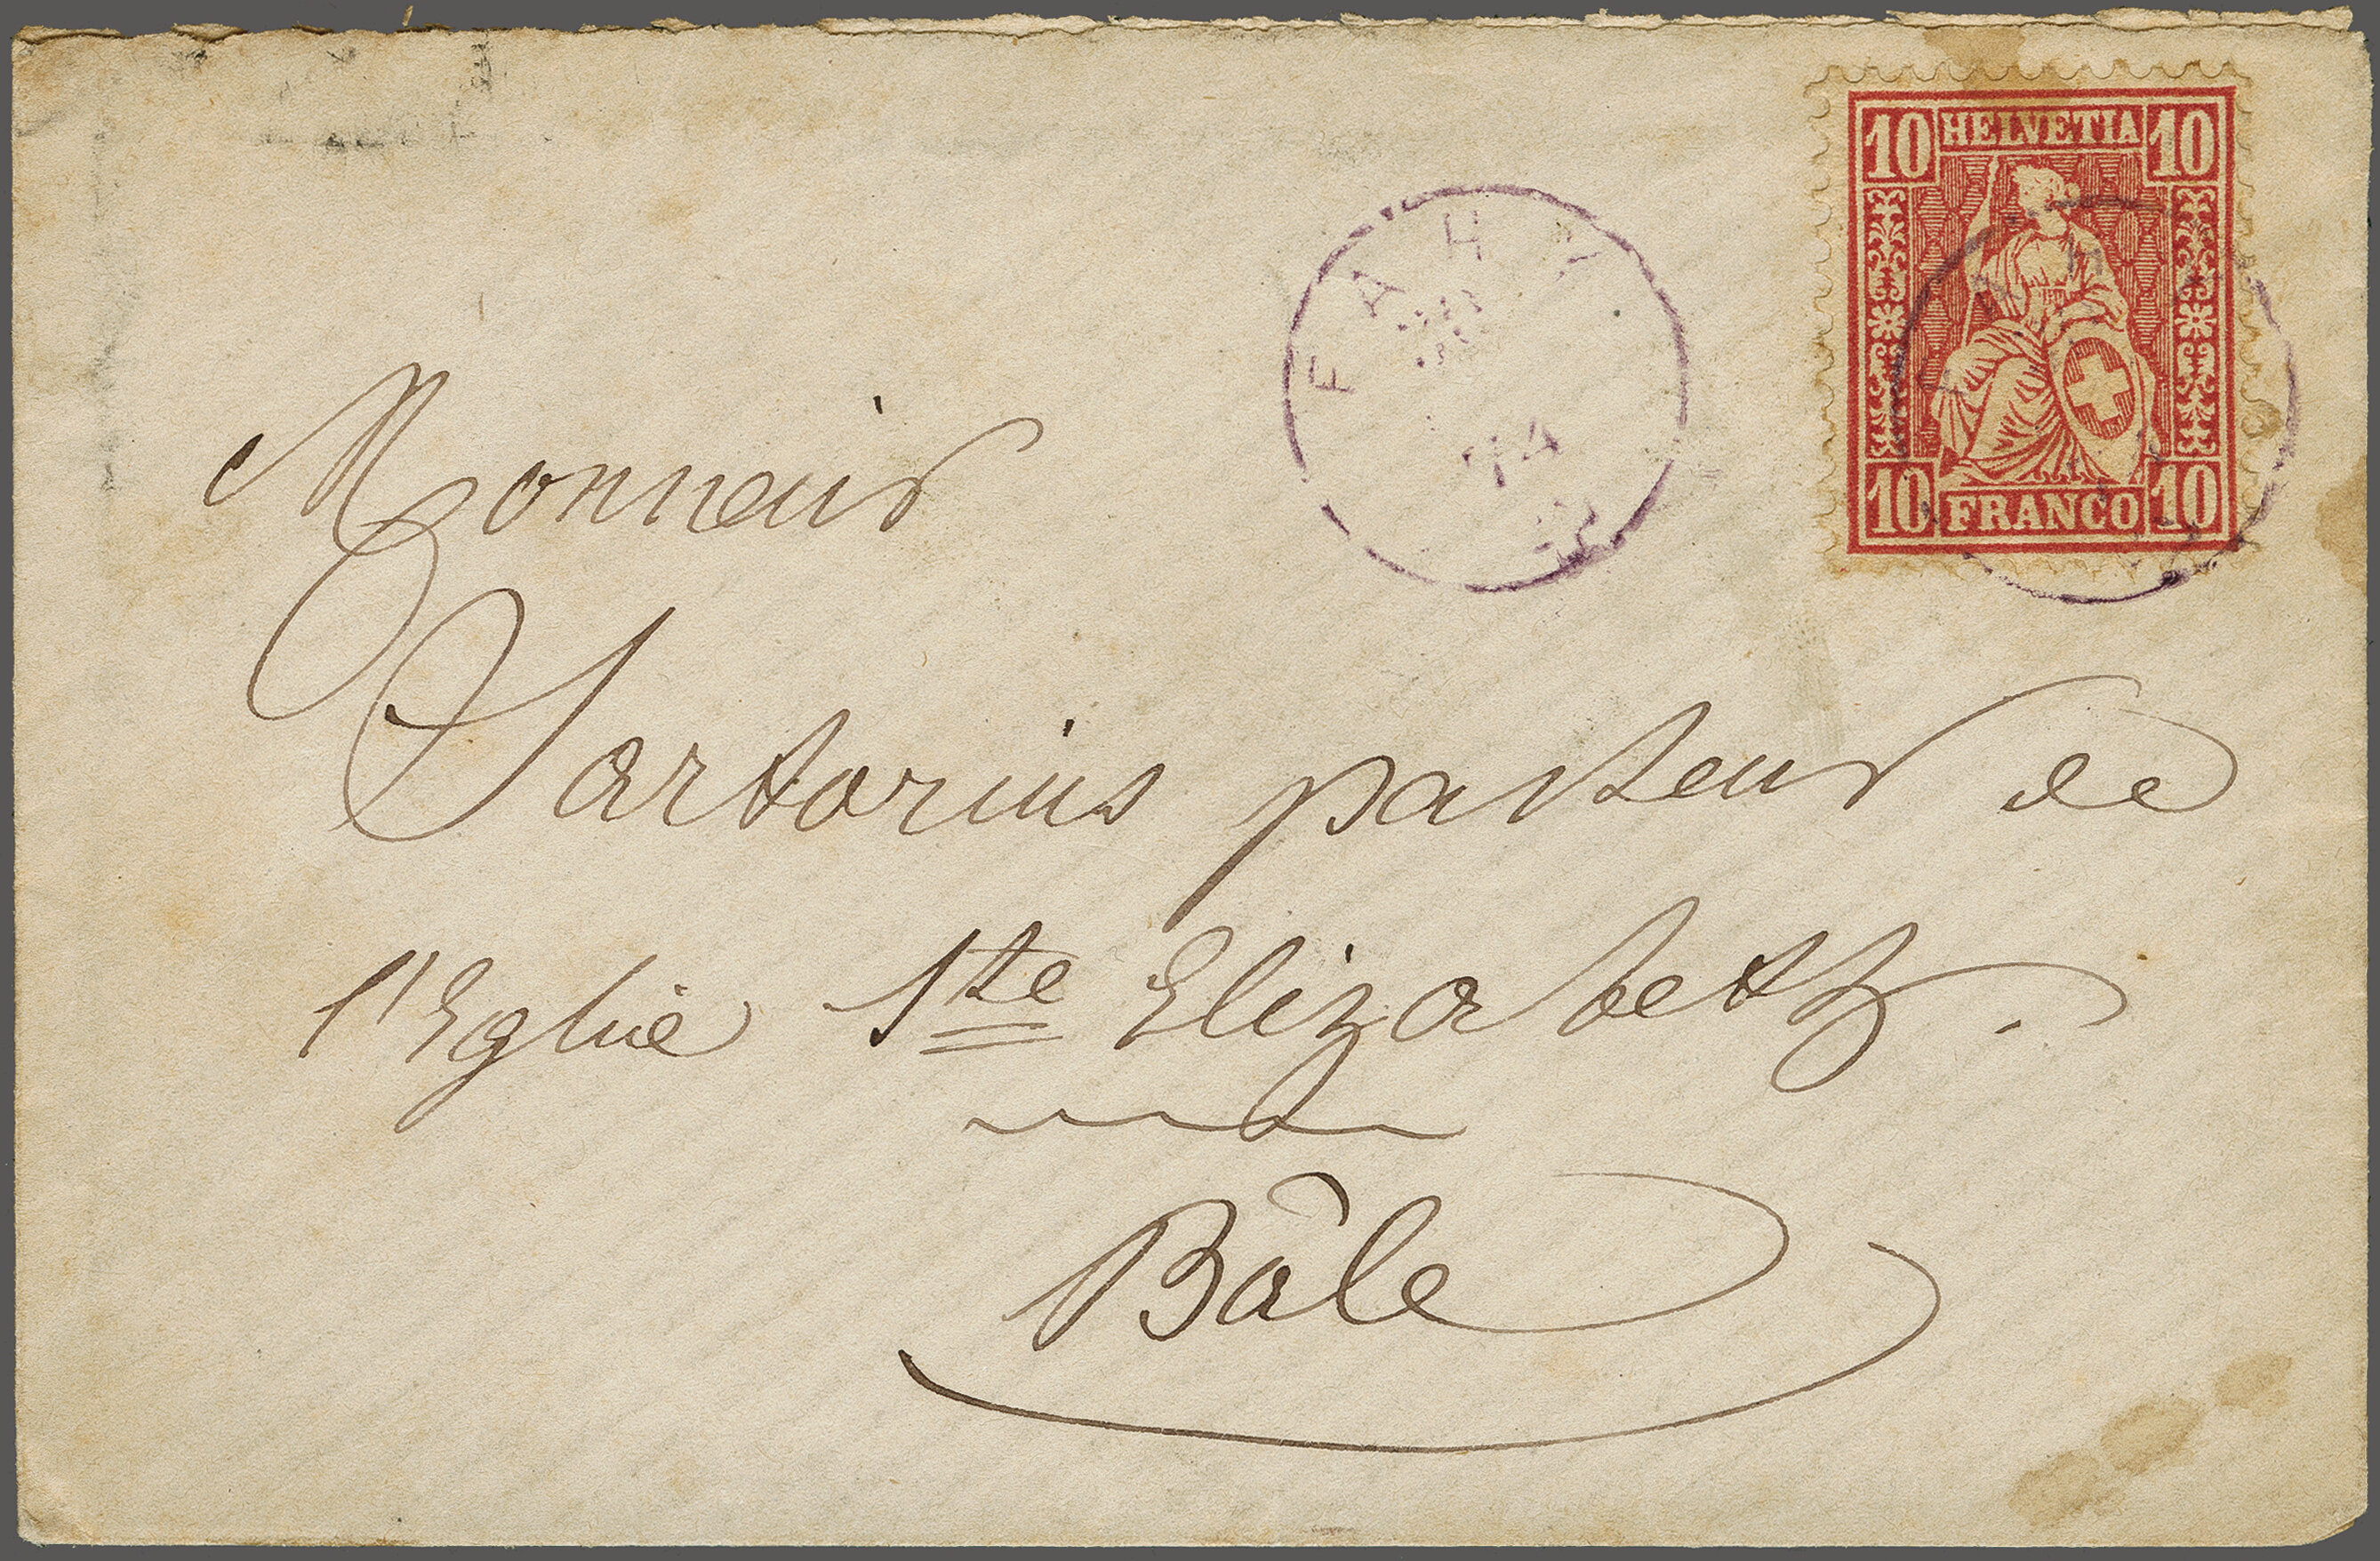 10 HELVETIA 10
10 FRANCO 10
FAHY
74
Monsieur
Sartorius pasteur de
l'Eglise Ste Elizabeth.
Bâle